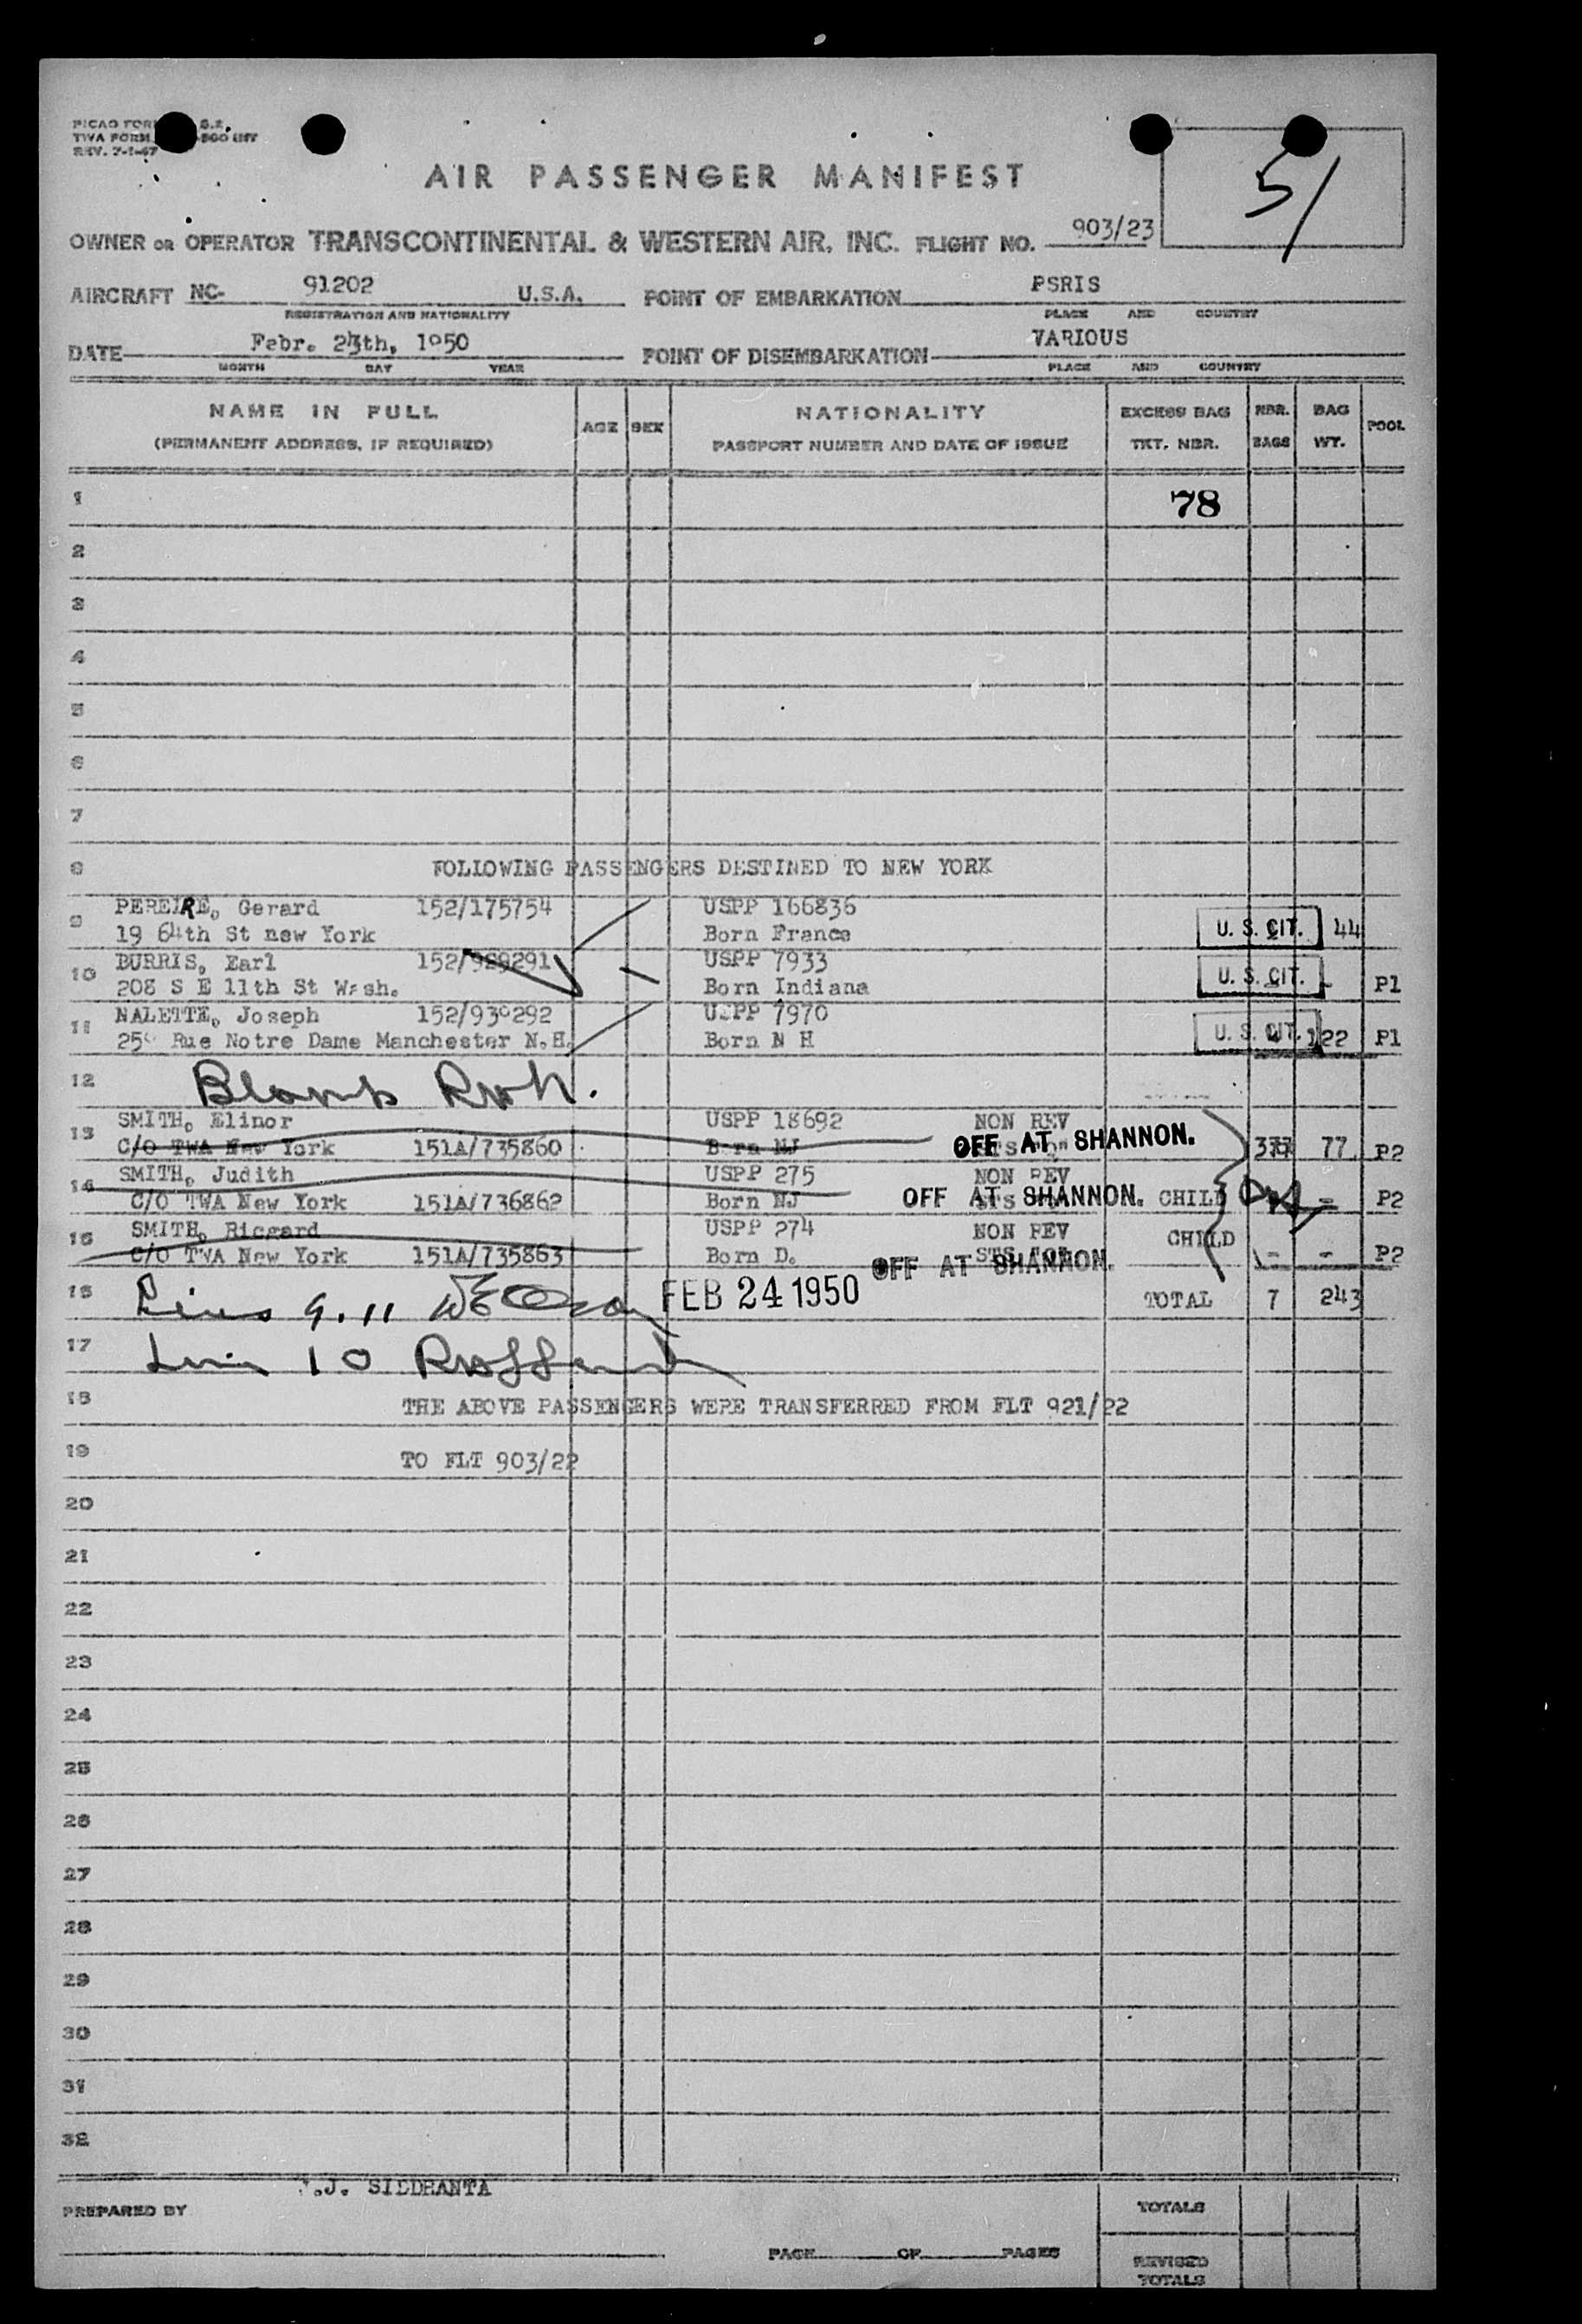 PICAO FORM G.2.
TWA FORM -500 INT
REV. 7-1-47
AIR PASSENGER MANIFEST
51
OWNER OR OPERATOR TRANSCONTINENTAL & WESTERN AIR, INC. FLIGHT NO. 903/23
AIRCRAFT NC- 91202 U.S.A. POINT OF EMBARKATION PSRIS
REGISTRATION AND NATIONALITY PLACE AND COUNTRY
DATE Febr. 23th, 1950 POINT OF DISEMBARKATION VARIOUS
MONTH DAY YEAR PLACE AND COUNTRY
NAME IN FULL AGE SEX NATIONALITY EXCESS BAG NBR. BAG POOL
(PERMANENT ADDRESS, IF REQUIRED) PASSPORT NUMBER AND DATE OF ISSUE TKT. NBR. BAGS WT.
1 78
2
3
4
5
6
7
8 FOLLOWING PASSENGERS DESTINED TO NEW YORK
9 PEREIRE, Gerard 152/175754 USPP 166836
19 64th St new York Born France U. S. CIT. 44
10 BURRIS, Earl 152/929291 USPP 7933
208 S E 11th St Wash. Born Indiana U. S. CIT. - P1
11 NALETTE, Joseph 152/930292 USPP 7970
Rue Notre Dame Manchester N.H. Born N H U. S. CIT. 122 P1
12 Blank
13 SMITH, Elinor USPP 18692 NON REV
C/O TWA New York 151A/735860 Born NJ OFF AT SHANNON. 77 P2
14 SMITH, Judith USPP 275 NON REV
C/O TWA New York 151A/736862 Born NJ OFF AT SHANNON. CHILD - P2
15 SMITH, Ricgard USPP 274 NON REV CHILD
C/O TWA New York 151A/735863 Born D. OFF AT SHANNON. - - P2
16 Lines 9.11 FEB 24 1950 TOTAL 7 243
17 Line 10
18 THE ABOVE PASSENGERS WERE TRANSFERRED FROM FLT 921/22
19 TO FLT 903/22
20
21
22
23
24
25
26
27
28
29
30
31
32
.J. SIDDRANTA
PREPARED BY TOTALS
PAGE OF PAGES REVISED
TOTALS